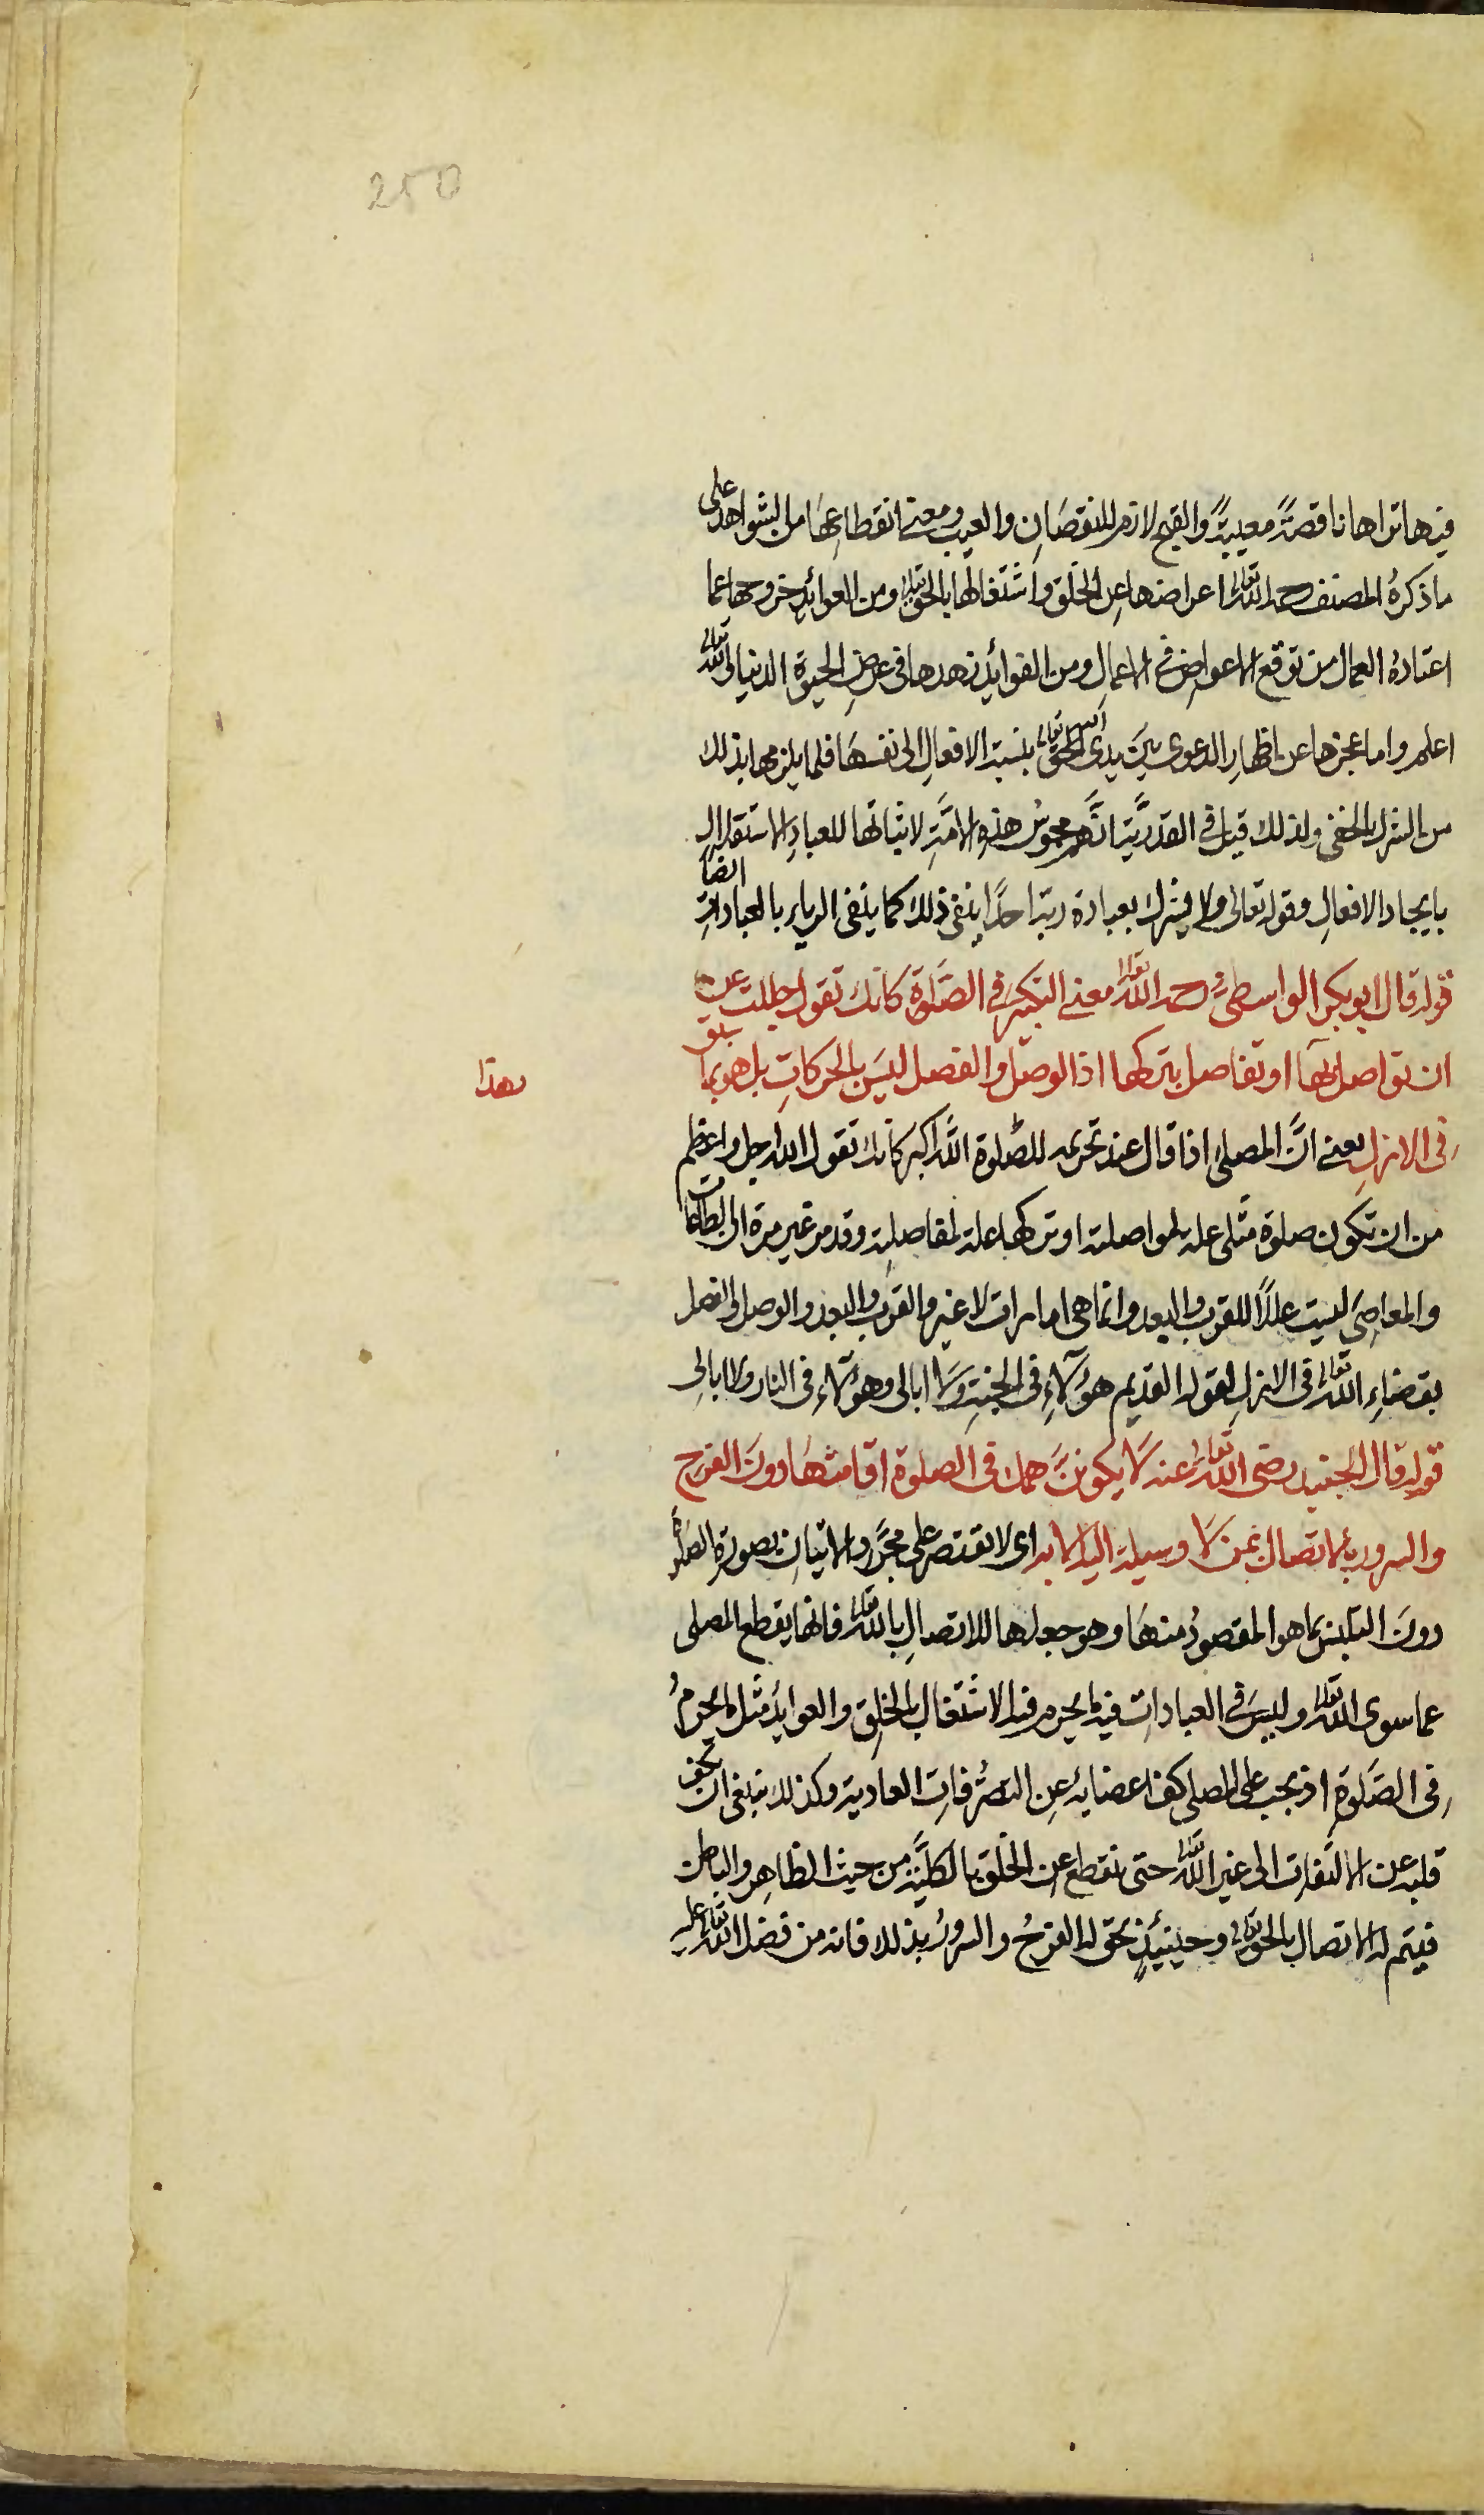 250
فيها تراها ناقصةً معيبةً والقبح لازم للنقصان والعيب ومعنى انقطاعها من الشواهد على
ما ذكره المصنف رحمه الله تعالى اعراضها عن الخلق واشتغالها بالحق تعالى ومن العوائد خروجها عما
اعتاده العمال من توقع الاعواض في الاعمال ومن الفوائد زهدها في عرض الحيوة الدنيا والله تعالى
اعلم واما عجزها عن اظهار الدعوى بين يدى الحق تعالى بنسبة الافعال الى نفسها فلما يلزمها بذلك
من الشرك الخفى ولذلك قيل في القدرية انهم مجوس هذه الامة لاثباتها للعباد الاستقلال
بايجاد الافعال وقوله تعالى ولا يشرك بعبادة ربه احدًا ينفى ذلك كما ينفى الرياء بالعبادات ايضا
قوله قال ابو بكر الواسطى رحمه الله تعالى معنى التكبير في الصلوة كانك تقول جللت عن
ان تواصل بها او تفاصل بتركها اذ الوصل والفصل ليس بالحركات بل هو بما سبق
بهذا
في الازل يعنى انّ المصلى اذا قال عند تحريمه للصلوة الله اكبر كانك تقول الله اجل واعظم
من ان تكون صلوة مثلى علة لمواصلته او تركها علة لمفاصلته وقد مر غير مرة ان الطاعات
والمعاصى ليست عللاً للقرب والبعد وانما هى امارات لا غير والقرب والبعد والوصل والفصل
بقضاء الله تعالى في الازل لقوله القديم هؤلاء في الجنة ولا ابالى وهؤلاء في النار ولا ابالى
قوله قال الجنيد رضى الله تعالى عنه لا يكونن همك في الصلوة اقامتها دون الفرح
والسرور بالاتصال بمن لا وسيلة اليه الا به اى لا تقتصر على مجرد الاتيان بصورة الصلوة
دون التلبس بما هو المقصود منها وهو جعلها للاتصال بالله تعالى فانها يقطع المصلى
عما سوى الله تعالى وليس في العبادات فيما يحرم فيه الاشتغال بالخلق والعوايد مثل ما يحرم
في الصلوة اذ يجب على المصلى كف اعضايه عن التصرفات العادية وكذلك ينبغى ان يكف
قلبه عن الالتفات الى غير الله تعالى حتى ينقطع عن الخلق بالكلية من حيث الظاهر والباطن
فيتم له الاتصال بالحق تعالى وحينئذ يحق له الفرح والسرور بذلك فانه من فضل الله تعالى عليه